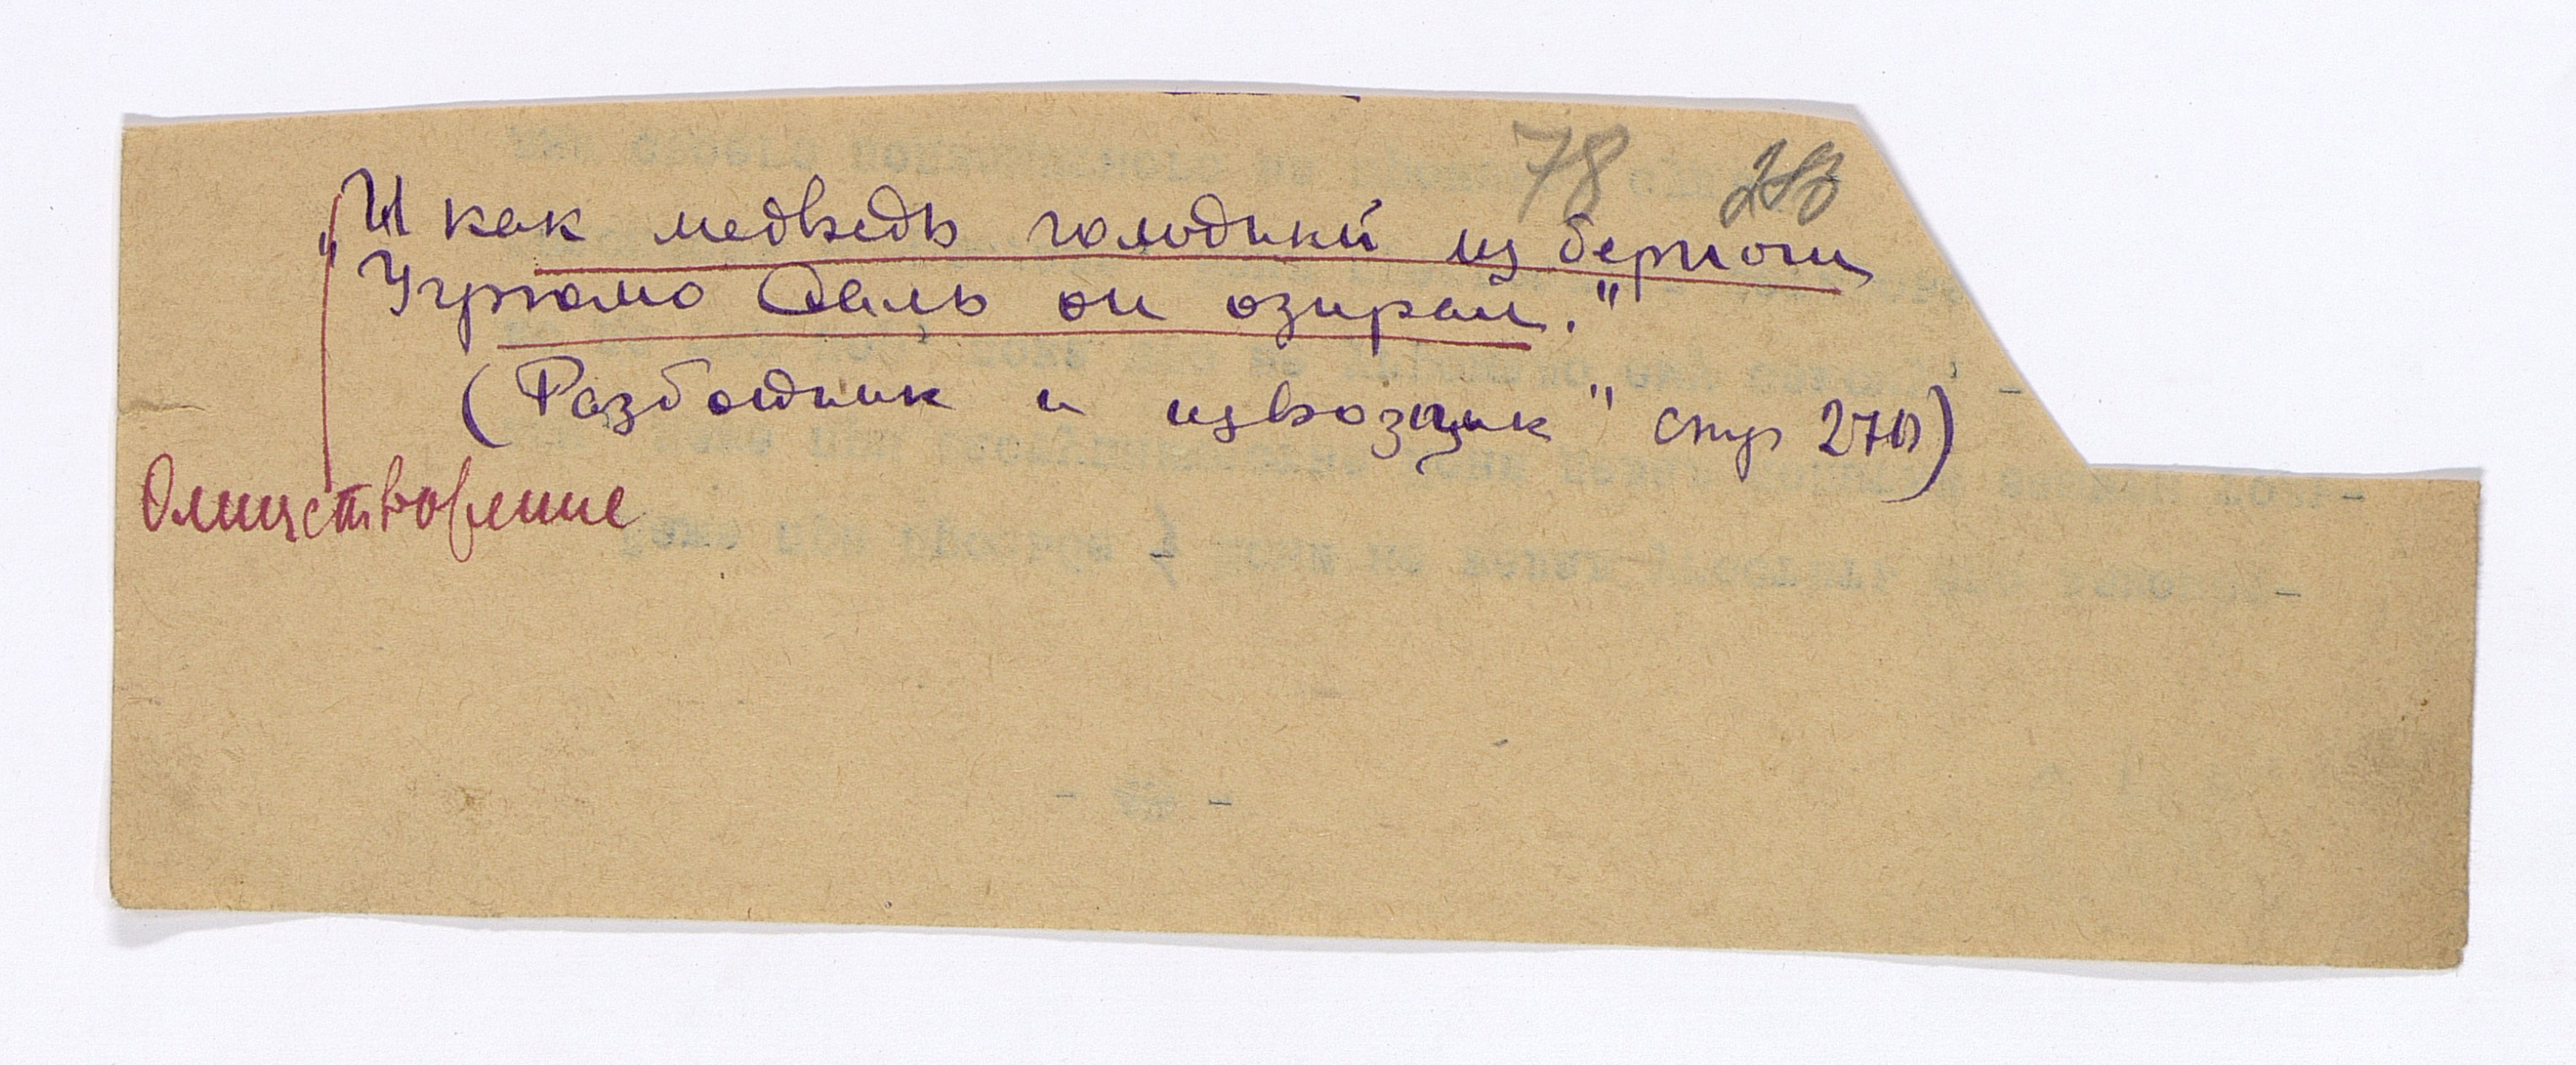 78
"И как медведь голодный из берлоги
Угрюмо даль он озирал."
(Разбойник и извозщик" стр 270)
Олицетворение